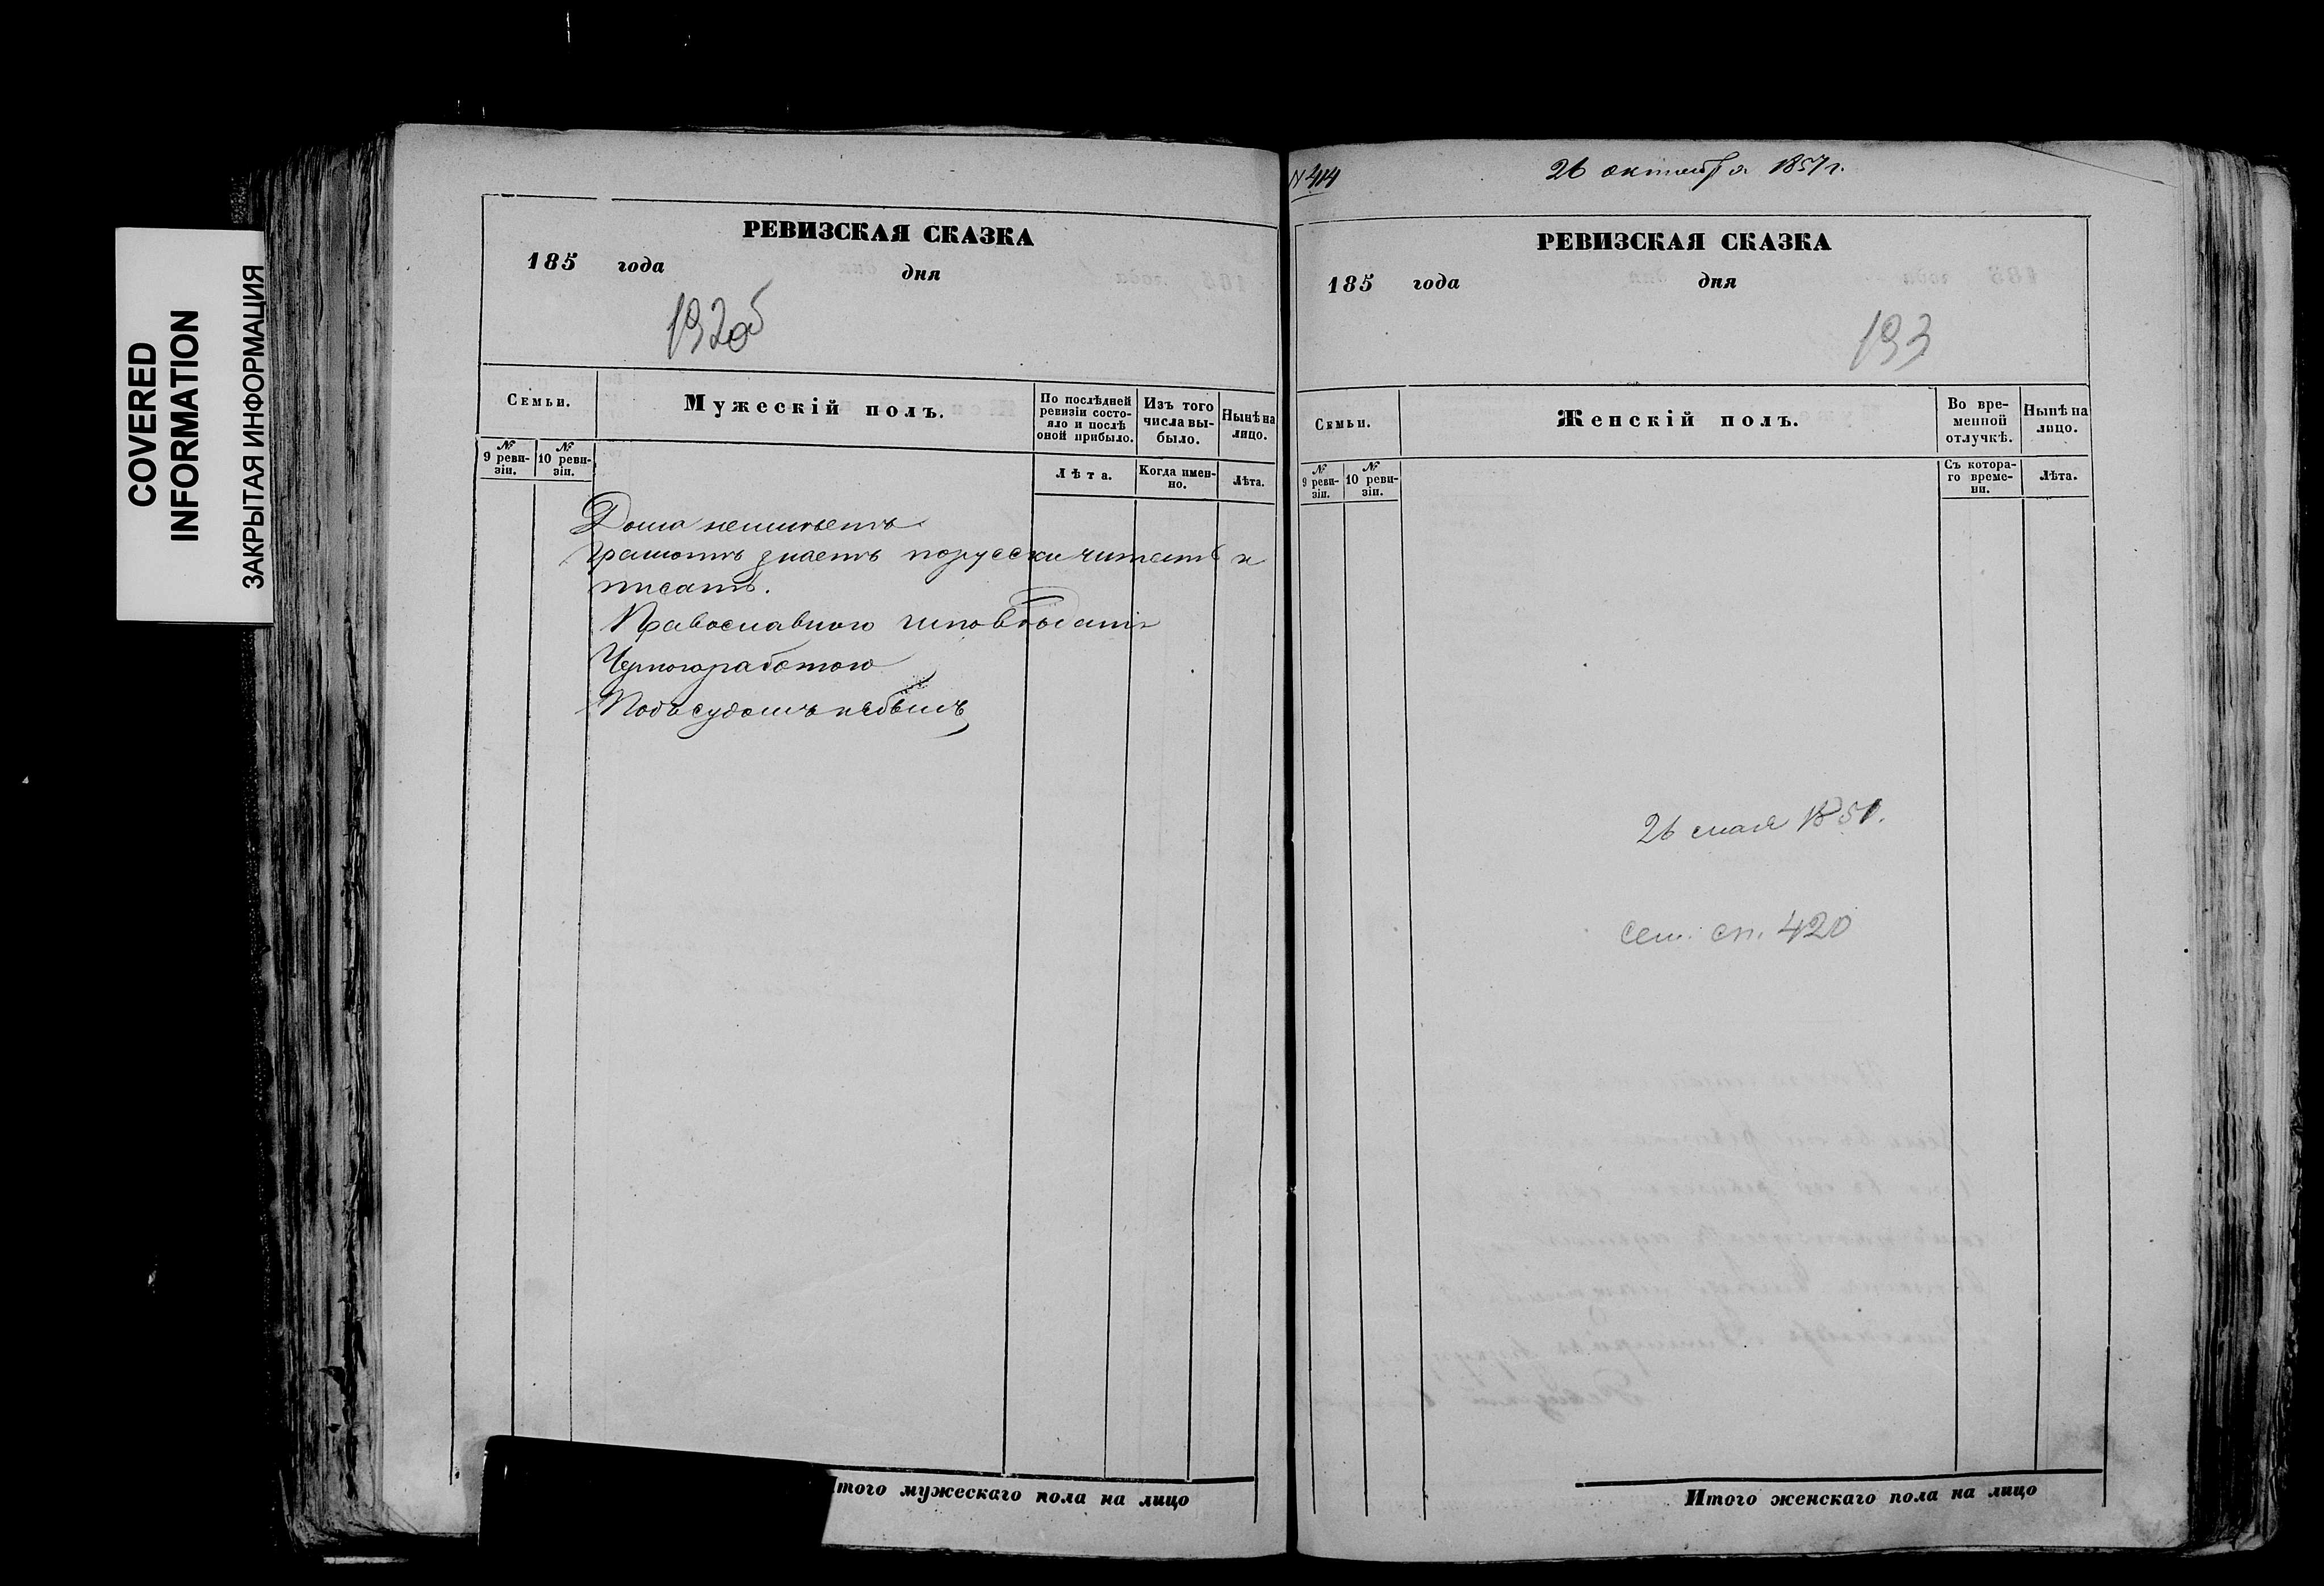 COVERED
INFORMATION
ЗАКРЫТАЯ ИНФОРМАЦИЯ
РЕВИЗСКАЯ СКАЗКА
185 года дня
192об
Семьи.
Мужескій полъ.
По послѣдней ревизіи состояло и послѣ оной прибыло.
Изъ того числа выбыло.
Нынѣ на лицо.
№ 9 ревизіи.
№ 10 ревизіи.
Лѣта.
Когда именно.
Лѣта.
Дома неимѣетъ
грамотѣ знаетъ порусски читать и
писать.
Православного исповѣданія
Черноюработою
Подъ судомъ небылъ
Итого мужескаго пола на лицо
№ 414
26 октября 1857 г.
РЕВИЗСКАЯ СКАЗКА
185 года дня
193
Семьи.
Женскій полъ.
Во временной отлучкѣ.
Нынѣ на лицо.
№ 9 ревизіи.
№ 10 ревизіи.
Съ котораго времени.
Лѣта.
26 мая 1851.
сем. сп. 420
Итого женскаго пола на лицо